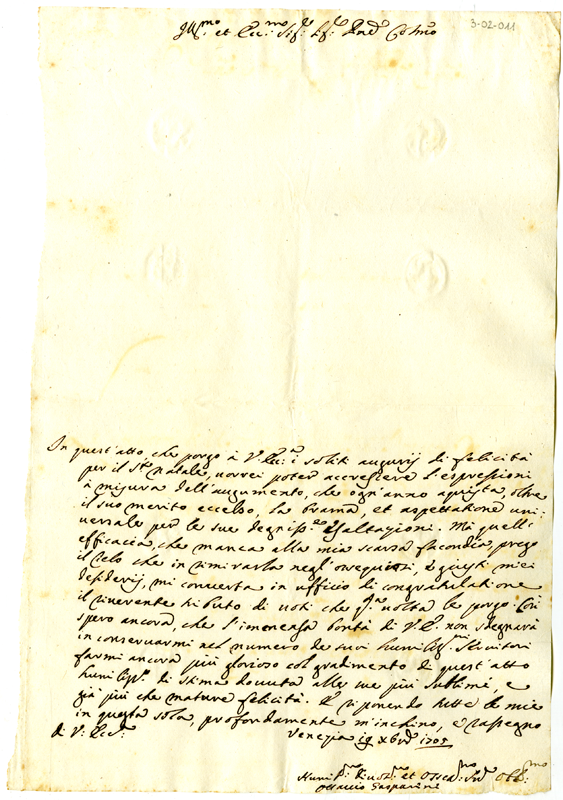 Ill.mo et Ecc.mo Sig.r Sig.r Pnd Colmo
3-02-011
In quest'atto, che porgo à V. Ecc.a i soliti augurij di felicità
per il S.to natale, vorrei poter accrescere l'espressioni
à misura dell'augumento, che ogn'anno aquista, oltre
il suo merito eccelso, la brama, et aspettatione uni:
uersale per le sue degniss.me Esaltazioni. Mà quell'
efficacia, che manca alla mia scarsa facondia, prego
il Cielo che in rimirarla negl'ossequiosi, e giusti miei
desiderij, mi conuerta in ufficio di congratulatione
il riuerente tributo di uoti che p.nte uolta le porgo. Così
spero ancora, che l'immensa bontà di V. E. non sdegnarà
in conseruarmi nel numero de suoi humiliss.mi Seruitori
farmi ancora più glorioso col gradimento di quest'atto
humiliss.o di stima douuta alle sue più sublimi, e
già più che mature felicità. E riponendo tutte le mie
in questa sola, profondamente m'inchino, e rassegno
di V. Ecc.a
Venezia 19 Xbre 1705
Humil.mo Deuot.mo et Osseq.mo Ser. Obb.mo
Ottauio Gasparini